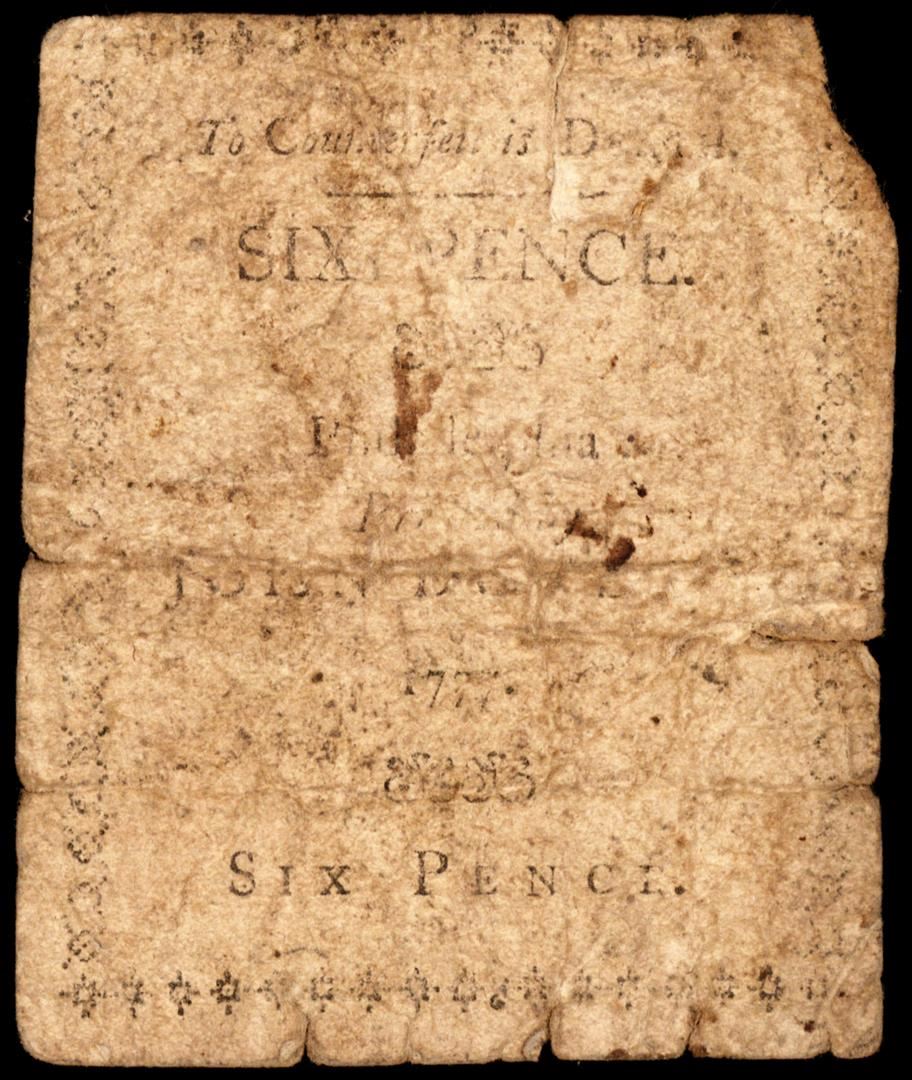 To Counterfeit is Death.
SIX PENCE.
Philadelphia
Printed
JOHN
1777.
SIX PENCE.